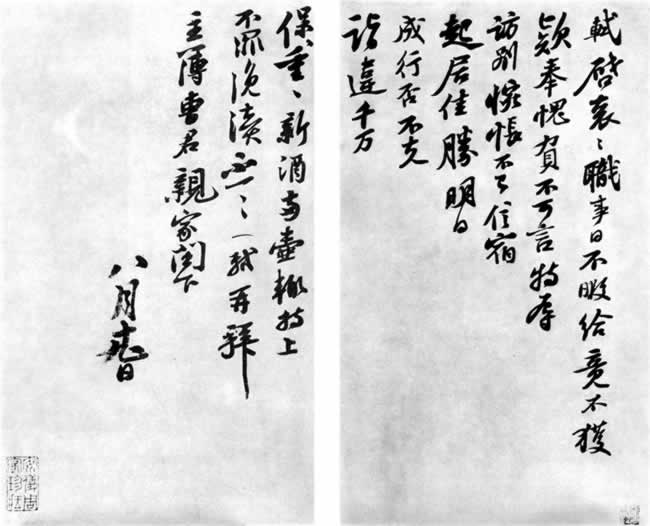 軾啓衮〻職事日不暇給竟不獲
款奉愧負不可言特辱
訪別惋悵不已信宿
起居佳勝明日
成行否不克
詣違千万
保重〻新酒兩壺輒持上
不罪浼瀆不一〻軾再拜
主簿曹君親家閤下
八月日